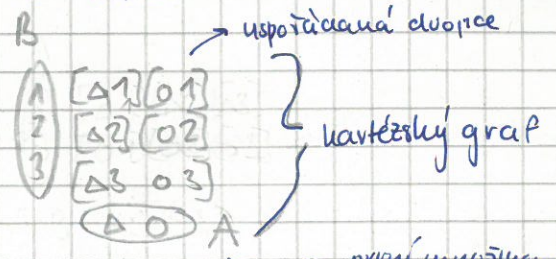 B
uspořádaná dvojce
1 [△1] [○1]
2 [△2] [○2]
kartézský graf
3 [△3 ○3]
△ ○ A